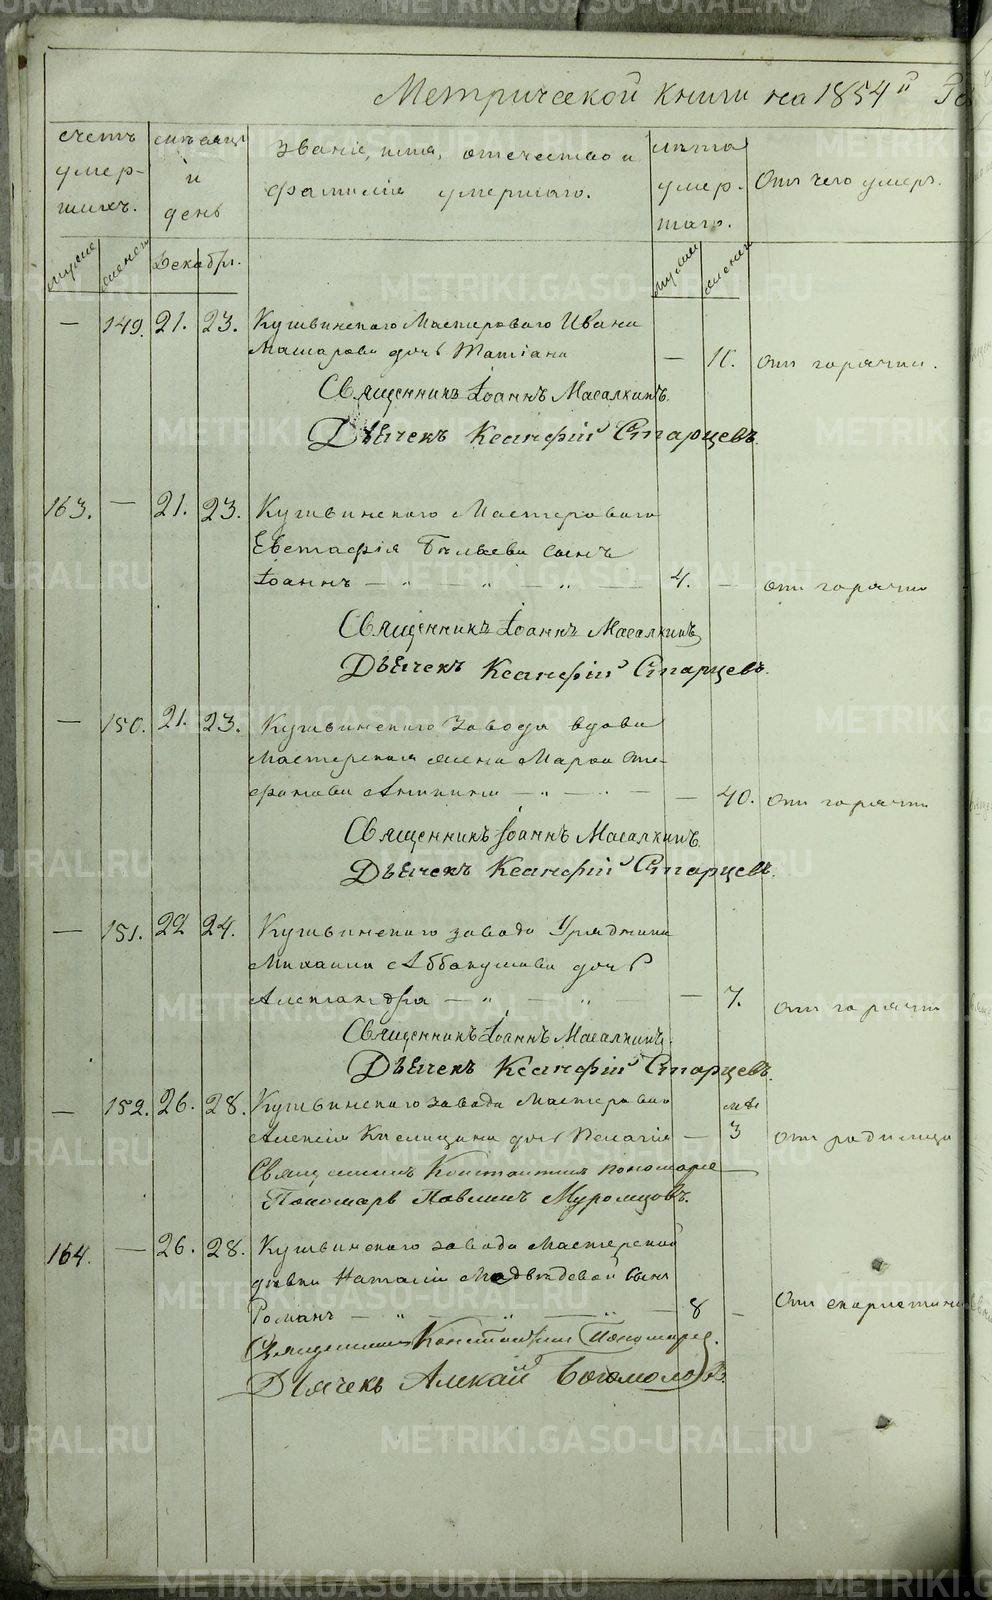 Метрической книги на 1854й
счетъ умер- шихъ.
мѣсяцъ и день
Званіе, имя, отечество и фамилія умершаго.
лѣта умер- шаго.
Отъ чего умеръ.
Декабрь.
— 149. 21. 23. Кушвинскаго Мастероваго Ивана
дочь Татіана — 11. отъ горячки.
Священникъ Іоаннъ Масалкинъ.
Дьячекъ Ксанфій Старцевъ.
163. — 21. 23. Кушвинскаго Мастероваго
Евстафія Бѣляева сынъ
Іоаннъ — „ — „ — „ — 4. — отъ горячки
Священникъ Іоаннъ Масалкинъ
Дьячекъ Ксанфій Старцевъ.
— 150. 21. 23. Кушвинскаго завода вдова
мастерская жена Марѳа Сте-
фанова Аникина — „ — „ — — 40. отъ горячки
Священникъ Іоаннъ Масалкинъ.
Дьячекъ Ксанфій Старцевъ.
— 151. 22 24. Кушвинскаго завода Урядника
Михаила Аббакумова дочь
Александра — „ — „ — — 7. отъ горячки
Священникъ Іоаннъ Масалкинъ.
Дьячекъ Ксанфій Старцевъ.
— 152. 26. 28. Кушвинскаго завода Мастероваго
Алексія Кислицина дочь Пелагія — 3 отъ родимца
Священникъ Константинъ Пономаревъ
Пономарь Павлинъ Муромцовъ.
164. — 26. 28. Кушвинскаго завода Мастерской
дѣвки Наталіи Медвѣдевой сынъ
Романъ — „ — „ — „ — 8 — Отъ скарлатины
Священникъ Константинъ Пономаревъ.
Дьячекъ Алексай Богомоловъ.
METRIKI.GASO-URAL.RU